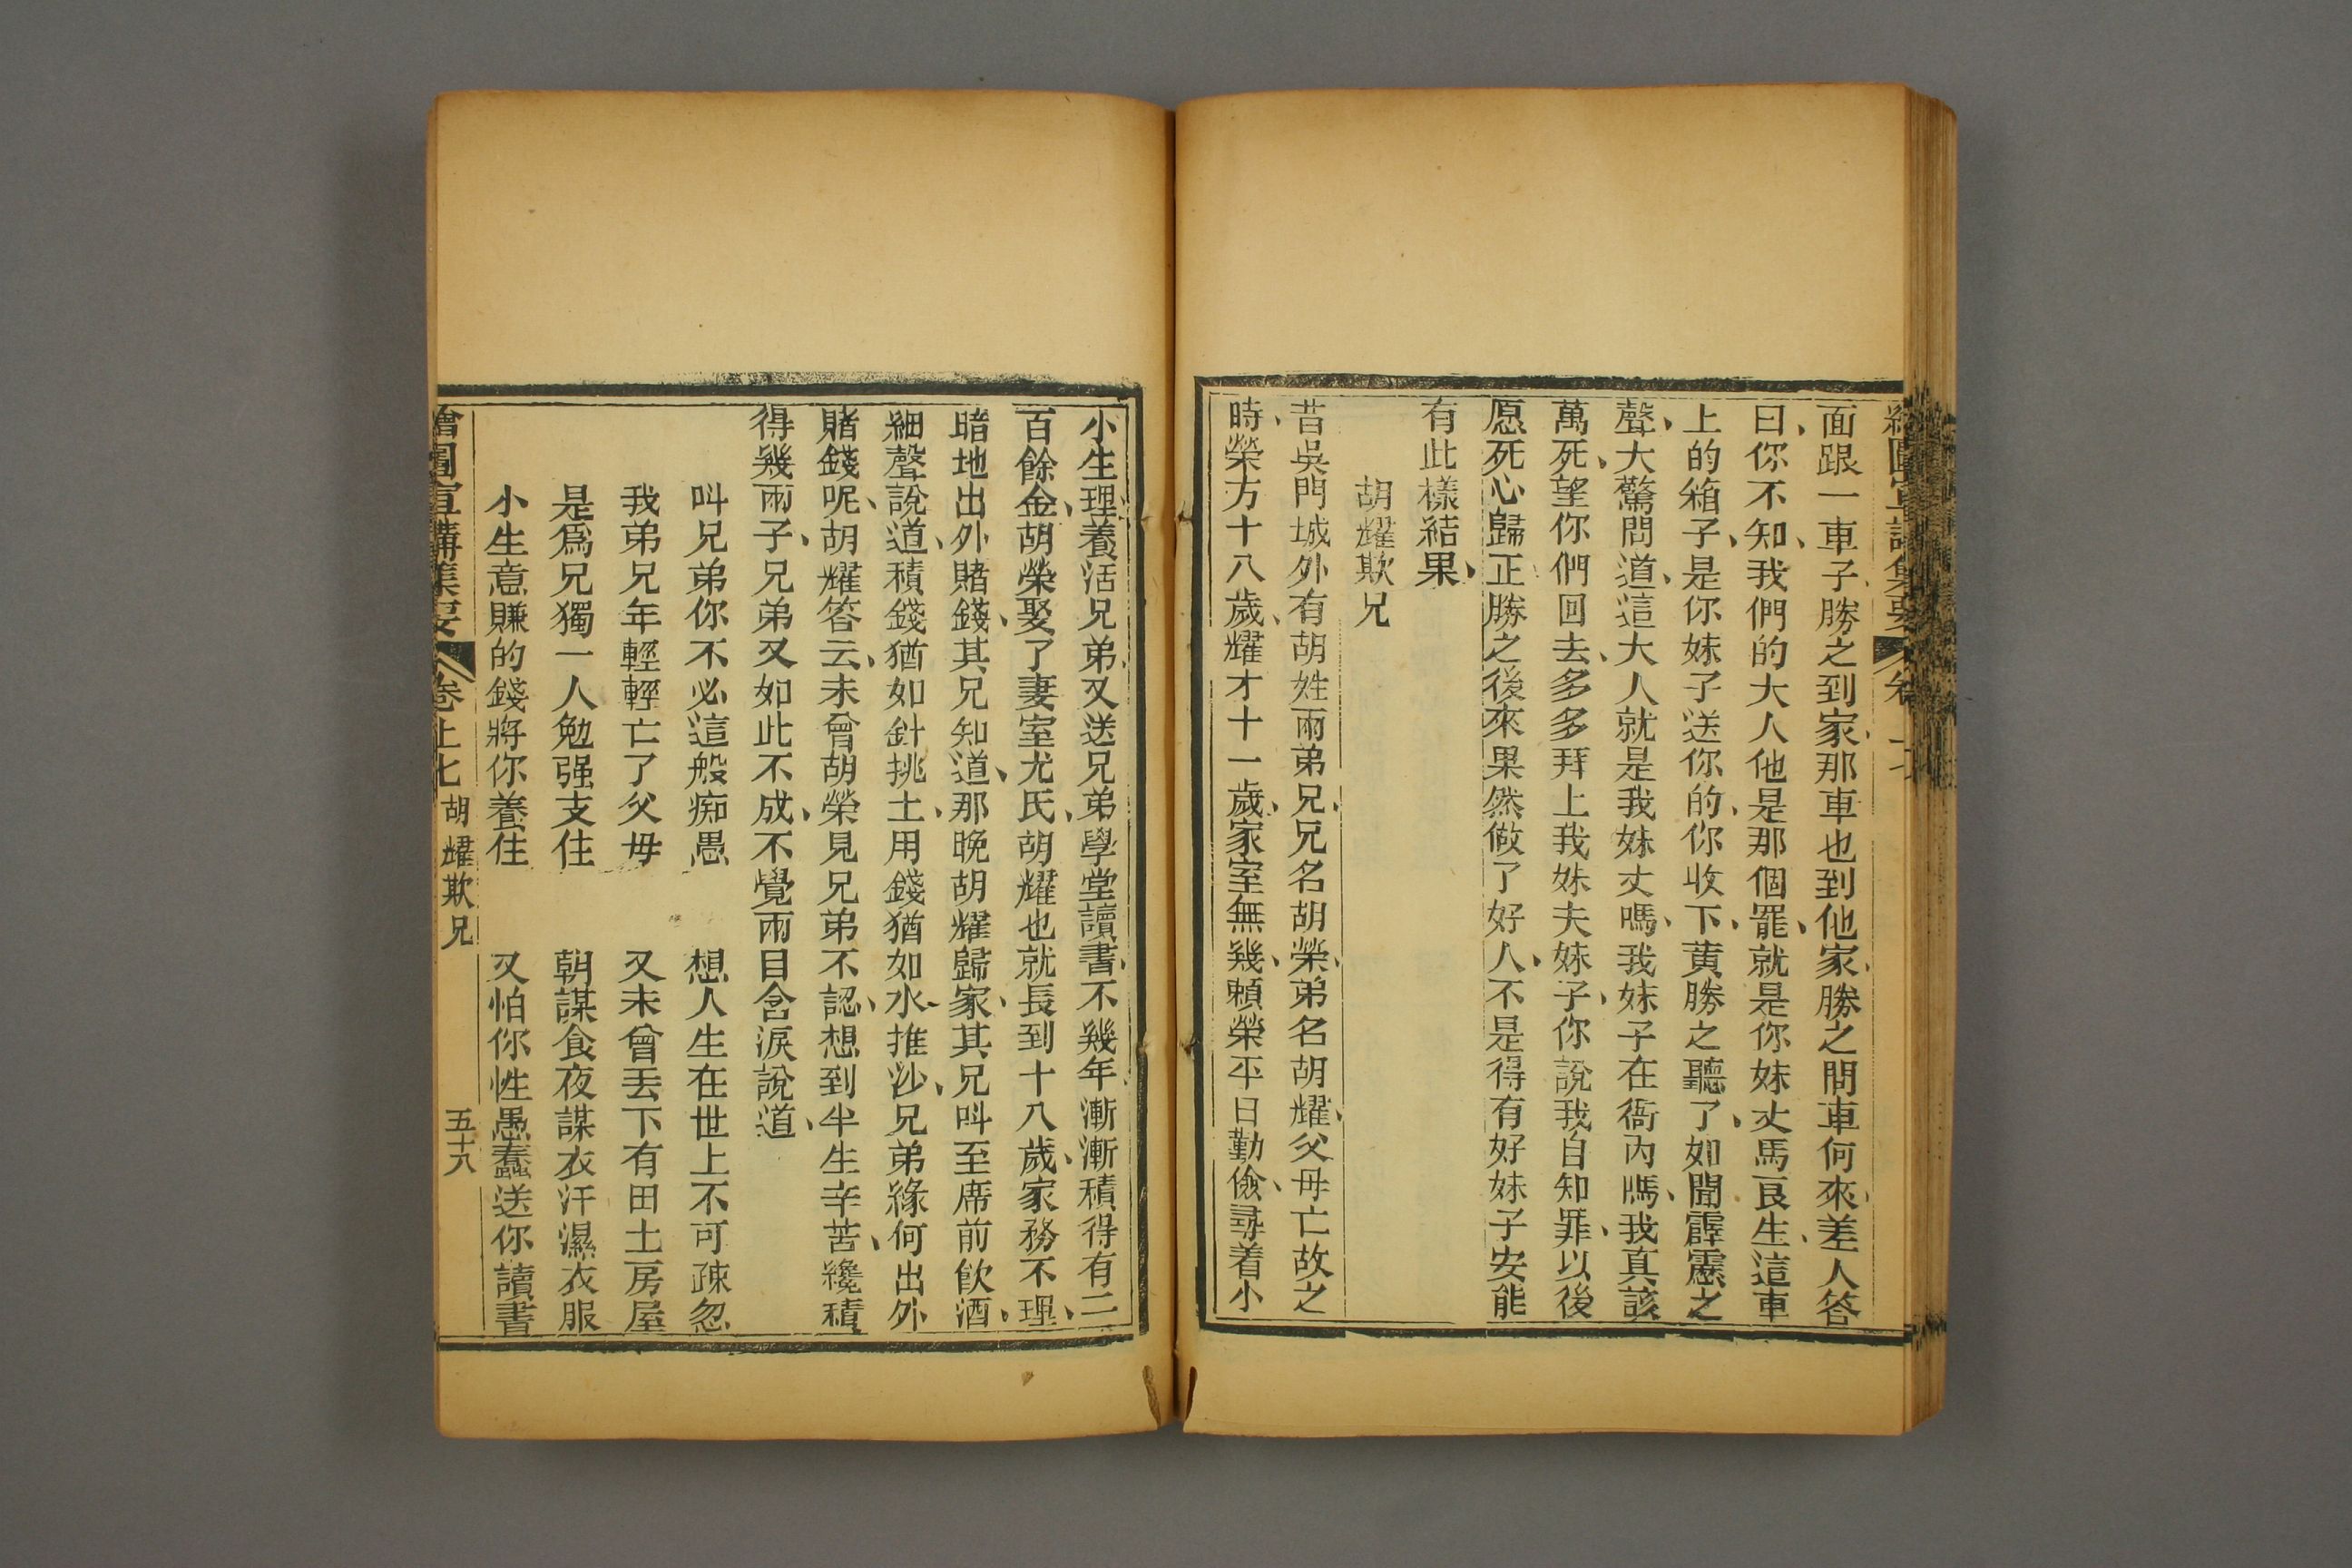 面跟一車子、勝之到家、那車也到他家、勝之問車何來、差人答
曰、你不知、我們的大人他是那個罷、就是你妹丈馬良生、這車
上的箱子、是你妹子送你的、你收下、黄勝之聽了、如聞霹靂之
聲、大驚問道、這大人就是我妹丈嗎、我妹子在衙內嗎、我真該
萬死、望你們回去、多多拜上我妹夫妹子、你說我自知罪、以後
愿死心歸正、勝之後來果然做了好人、不是得有好妹子、安能
有此樣結果、
胡耀欺兄
昔吳門城外有胡姓兩弟兄、兄名胡榮、弟名胡耀、父母亡故之
時、榮方十八歲、耀才十一歲、家室無幾、頼榮平日勤儉、尋着小
小生理、養活兄弟、又送兄弟學堂讀書、不幾年、漸漸積得有二
百餘金、胡榮娶了妻室尤氏、胡耀也就長到十八歲、家務不理、
暗地出外賭錢、其兄知道、那晚胡耀歸家、其兄叫至席前飲酒、
細聲說道、積錢猶如針挑土、用錢猶如水推沙、兄弟緣何出外
賭錢呢、胡耀答云、未曾、胡榮見兄弟不認、想到半生辛苦、纔積
得幾兩子、兄弟又如此不成、不覺兩目含淚說道、
叫兄弟你不必這般痴愚　想人生在世上不可疎忽
我弟兄年輕輕亡了父母　又未曾丟下有田土房屋
是爲兄獨一人勉强支住　朝謀食夜謀衣汗濕衣服
小生意賺的錢將你養住　又怕你性愚蠢送你讀書
繪圖宣講集要　卷上七　胡耀欺兄　五十六